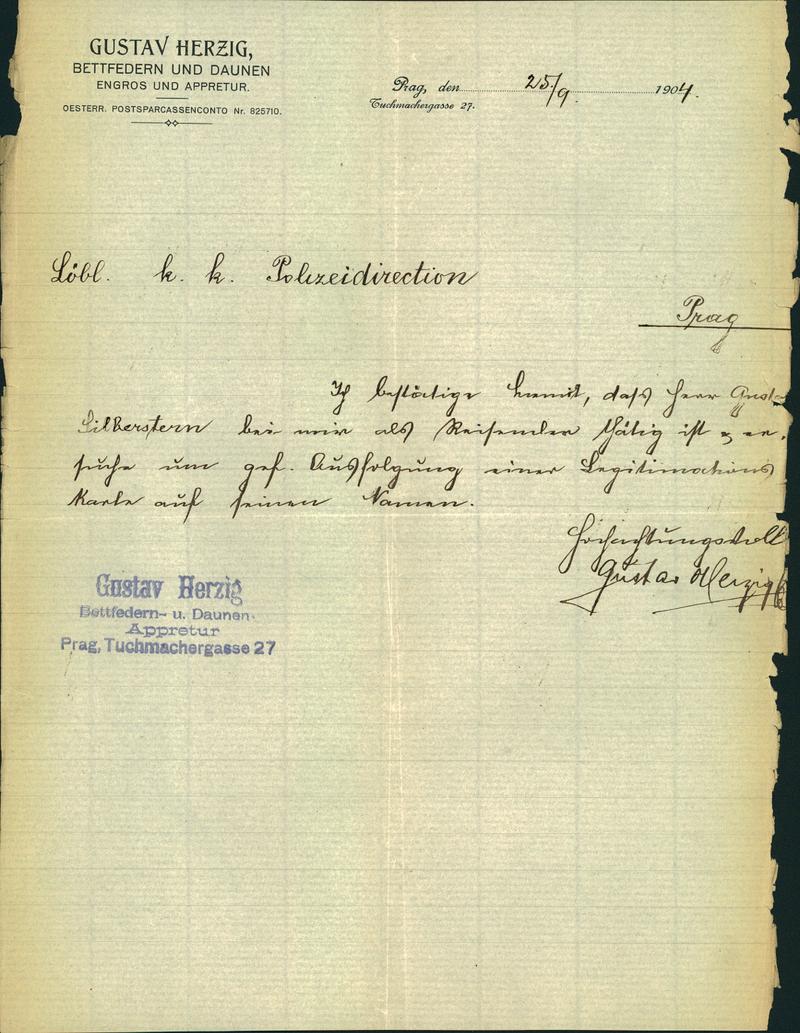 GUSTAV HERZIG,
BETTFEDERN UND DAUNEN
ENGROS UND APPRETUR.
OESTERR. POSTSPARCASSENCONTO Nr. 825710.
Prag, den 25/9. 1904.
Tuchmachergasse 27.
Löbl. k. k. Polizeidirection
Prag
Ich bestätige hiemit, dass Herr Gust.
Silberstern bei mir als Reisender thätig ist & er-
suche um gef. Ausfolgung einer Legitimations
Karte auf seinen Namen.
Hochachtungsvoll
Gustav Herzig
Gustav Herzig
Bettfedern- u. Daunen-
Appretur
Prag, Tuchmachergasse 27